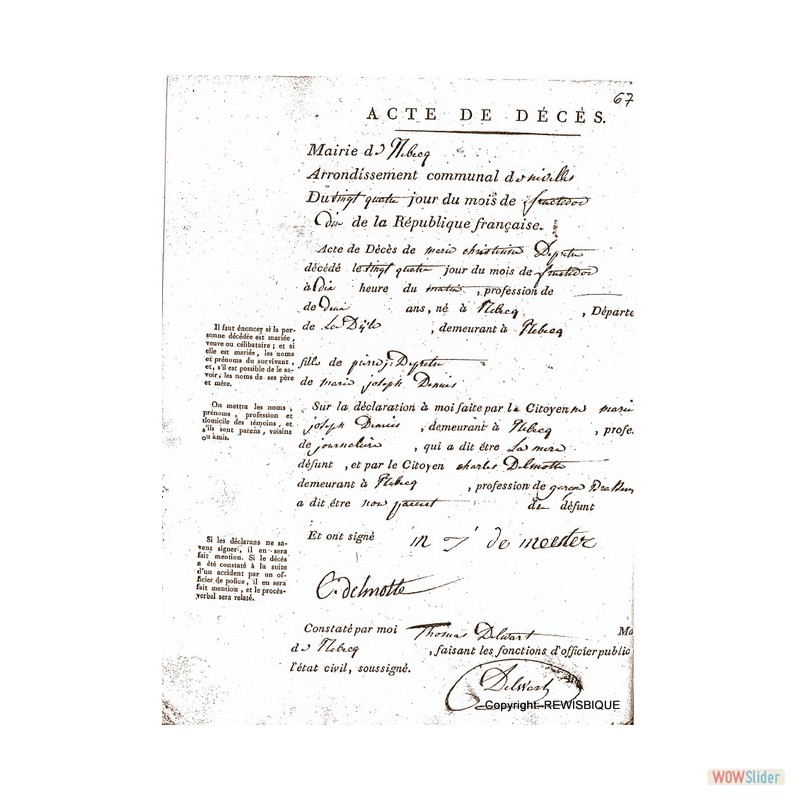 67
ACTE DE DÉCÈS.
Mairie de Rebecq
Arrondissement communal de nivelles
Du vingt quatre jour du mois de fructidor
dix de la République française.
Acte de Décès de marie christinne Depretre
décédé le vingt quatre jour du mois de fructidor
à dix heure du matin , profession de
de deux ans, né à Rebecq , Départe
de La Dyle , demeurant à Rebecq
Il faut énoncer si la per-
sonne décédée est mariée,
veuve ou célibataire ; et si
elle est mariée, les noms
et prénoms du survivant,
et, s'il est possible de le sa-
voir, les noms de ses père
et mère.
fille de pierre Depretre
de marie joseph
On mettra les noms,
prénoms, profession et
domicile des témoins, et
s'ils sont parens, voisins
ou amis.
Sur la déclaration à moi faite par le Citoyenne marie
joseph , demeurant à Rebecq , profe.
de journaliere , qui a dit être La mere
défunt , et par le Citoyen charles Delmotte
demeurant à Rebecq , profession de garcon
a dit être non parent du défunt
Si les déclarans ne sa-
vent signer, il en sera
fait mention. Si le décès
a été constaté à la suite
d'un accident par un of-
ficier de police, il en sera
fait mention, et le procès-
verbal sera relaté.
Et ont signé m J de meester
C. delmotte
Constaté par moi Thomas Delwart Ma
de Rebecq , faisant les fonctions d'officier public
l'état civil, soussigné.
Delwart
Copyright:-REWISBIQUE
WOWSlider